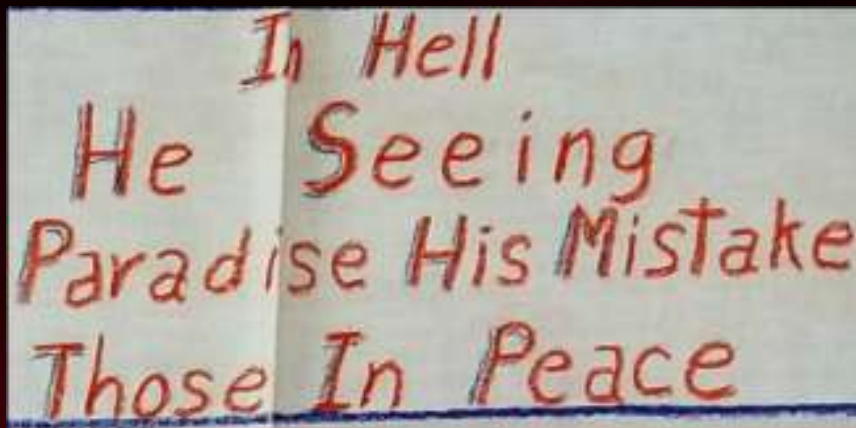 In Hell
He Seeing
Paradise His Mistake
Those In Peace